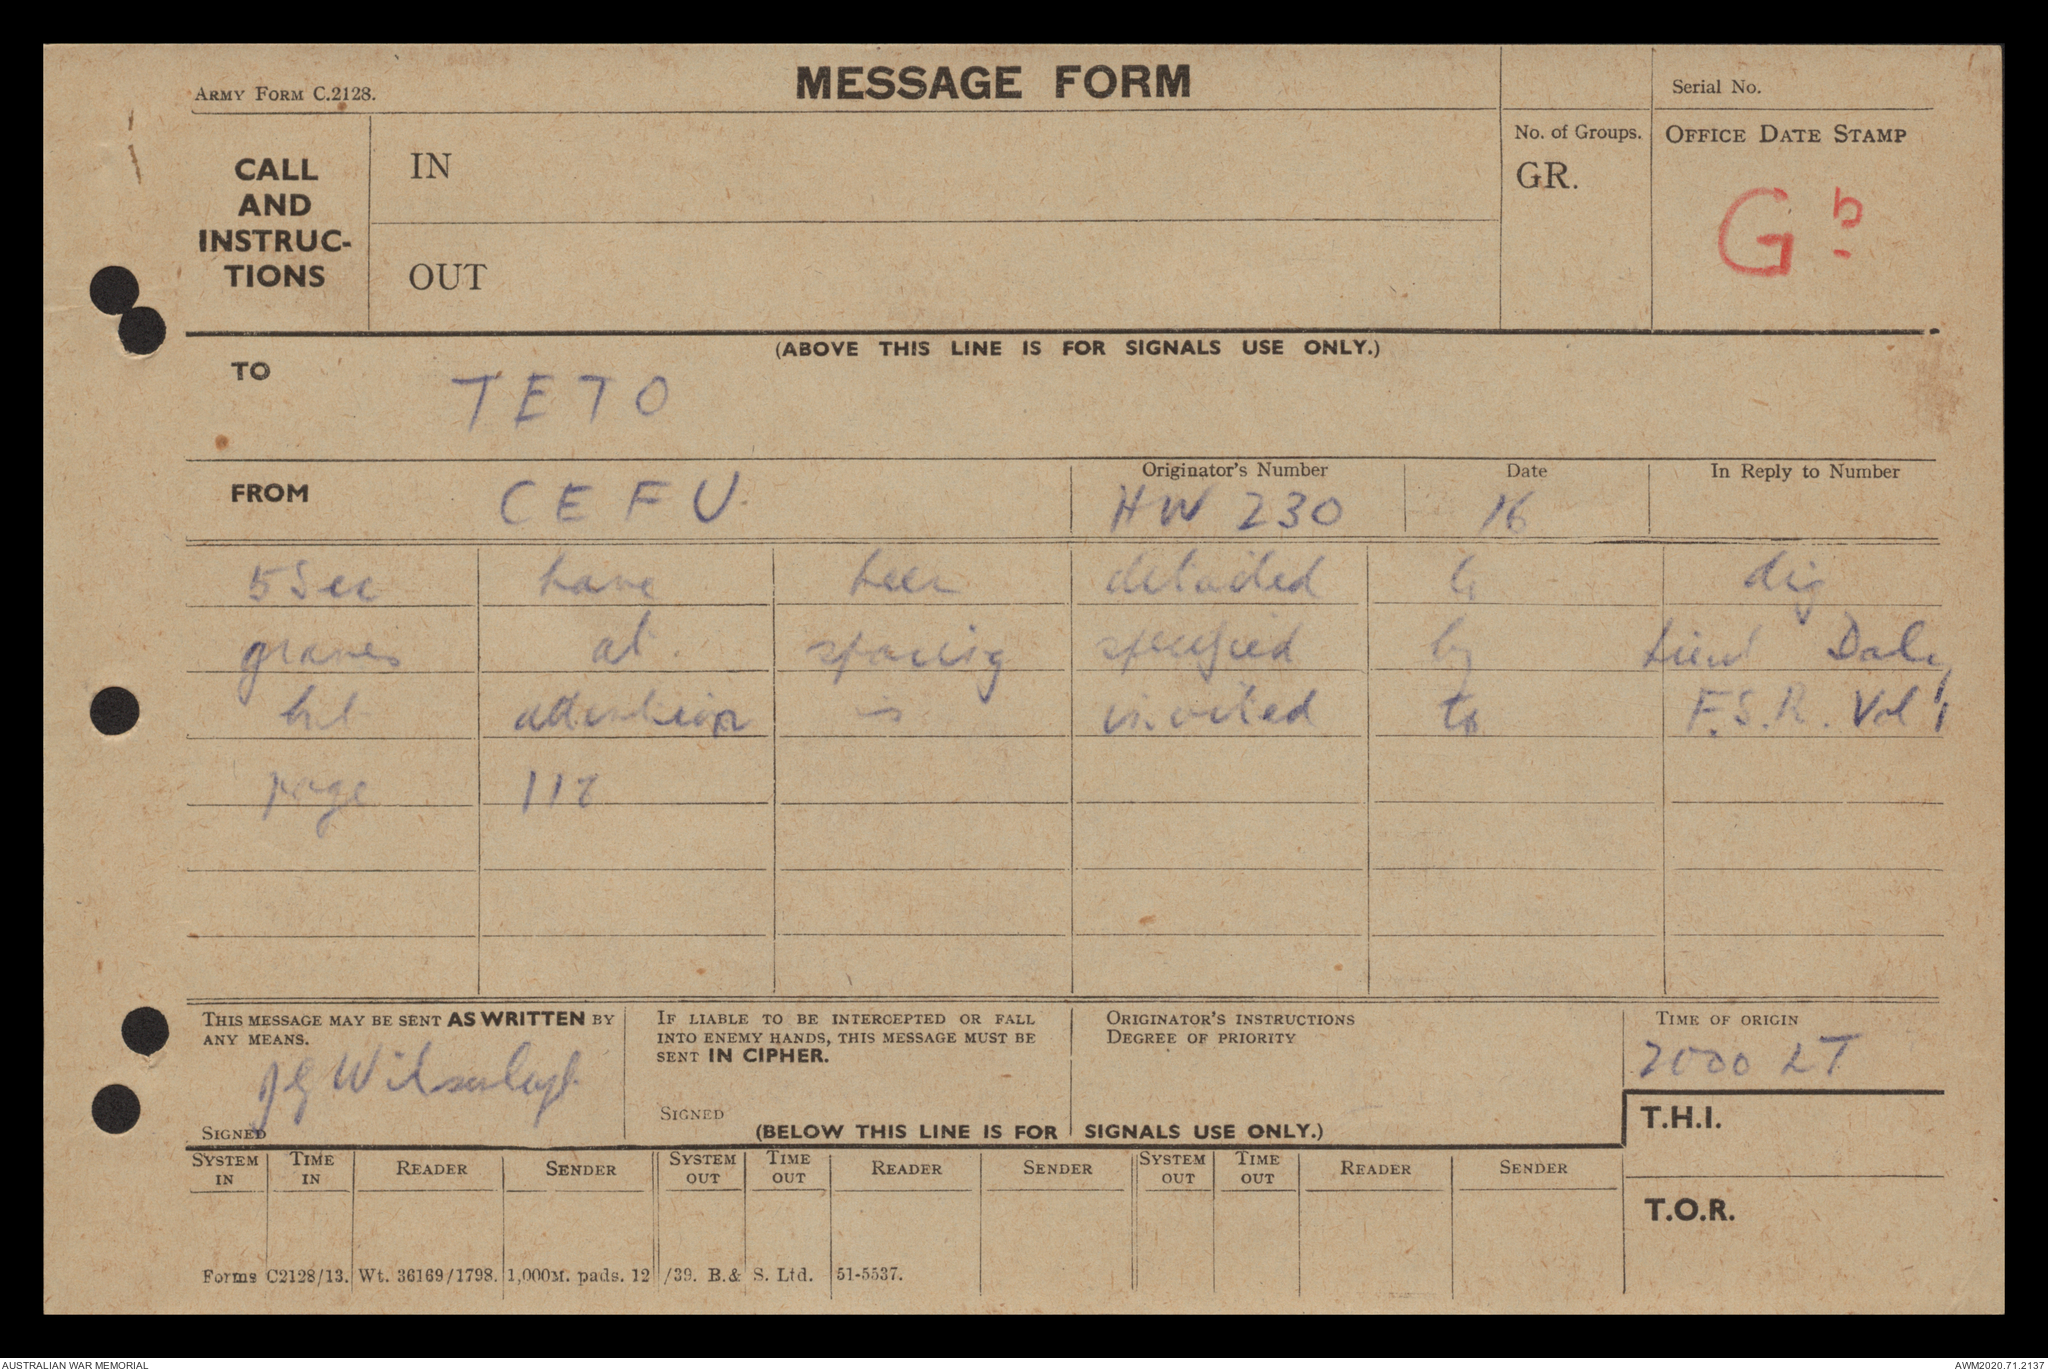 ARMY FORM C.2128.
MESSAGE FORM
Serial No.
CALL AND INSTRUC-TIONS
IN
OUT
No. of Groups.
GR.
OFFICE DATE STAMP
G
(ABOVE THIS LINE IS FOR SIGNALS USE ONLY.)
TO
TETO
FROM
CEFU
Originator's Number
HW 230
Date
16
In Reply to Number
5 Sec have been detailed to dig
graves at spacing specified by Lieut Daly
but attention is invited to F.S.R. Vol 1
page
THIS MESSAGE MAY BE SENT AS WRITTEN BY
ANY MEANS.
JG Wilson Capt
SIGNED
IF LIABLE TO BE INTERCEPTED OR FALL
INTO ENEMY HANDS, THIS MESSAGE MUST BE
SENT IN CIPHER.
SIGNED
ORIGINATOR'S INSTRUCTIONS
DEGREE OF PRIORITY
TIME OF ORIGIN
2000 LT
(BELOW THIS LINE IS FOR SIGNALS USE ONLY.)
T.H.I.
T.O.R.
SYSTEM IN TIME IN READER SENDER SYSTEM OUT TIME OUT READER SENDER SYSTEM OUT TIME OUT READER SENDER
Forms C2128/13. Wt. 36169/1798. 1,000M. pads. 12/39. B.& S. Ltd. 51-5537.
AUSTRALIAN WAR MEMORIAL
AWM2020.71.2137